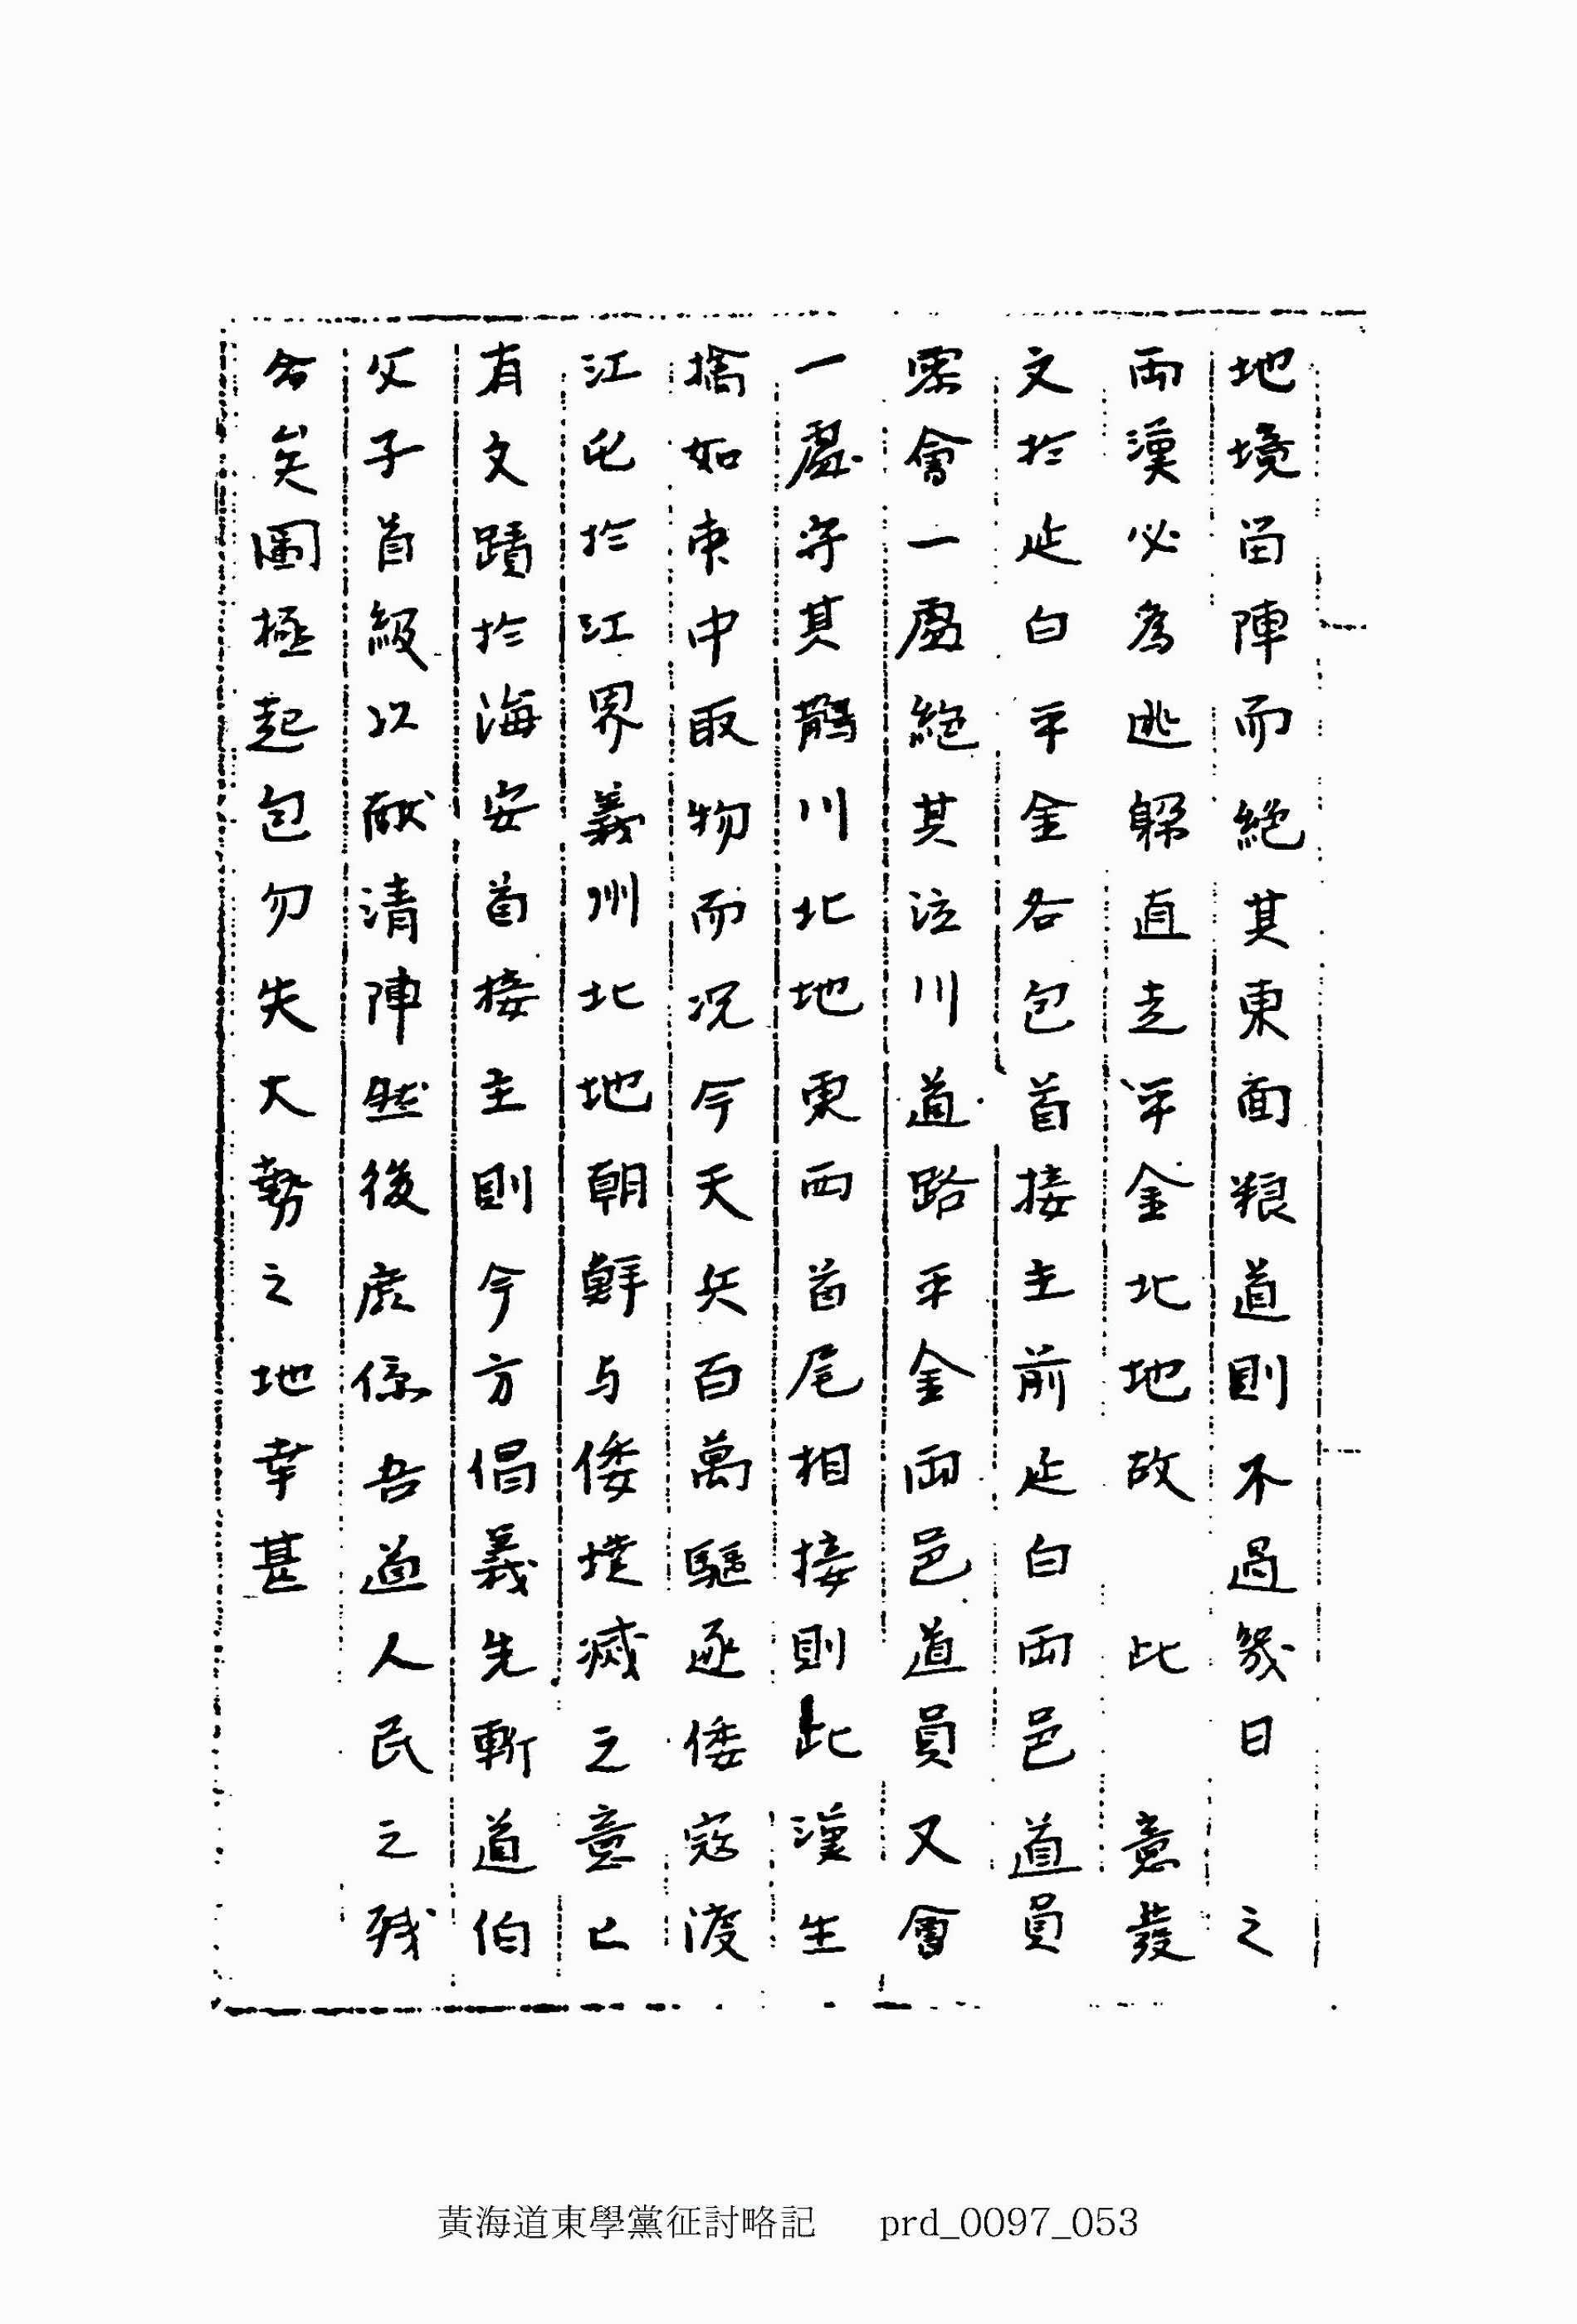 地境留陣而絶其東面粮道則不過幾日之
両漢必為逃躱直走平金北地故此意發
文於延白平金各包首接主前延白両邑道員
密會一處絶其泣川道路平金兩邑道員又會
一處守其鵲川北地東西首尾相接則此漢生
擒如束中取物而况今天兵百萬驅逐倭寇渡
江屯於江界義州北地朝鮮与倭撲滅之意已
有文蹟於海安首接主則今方倡義先斬道伯
父子首級以献清陣然後庶保吾道人民之残
命矣圖極起包勿失大勢之地幸甚
黃海道東學黨征討略記 prd_0097_053